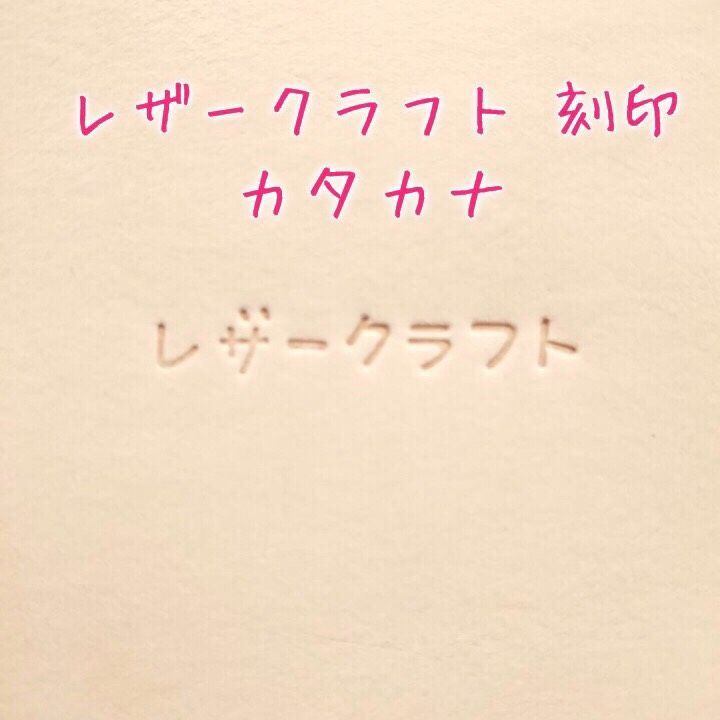 レザークラフト 刻印
カタカナ
レザークラフト